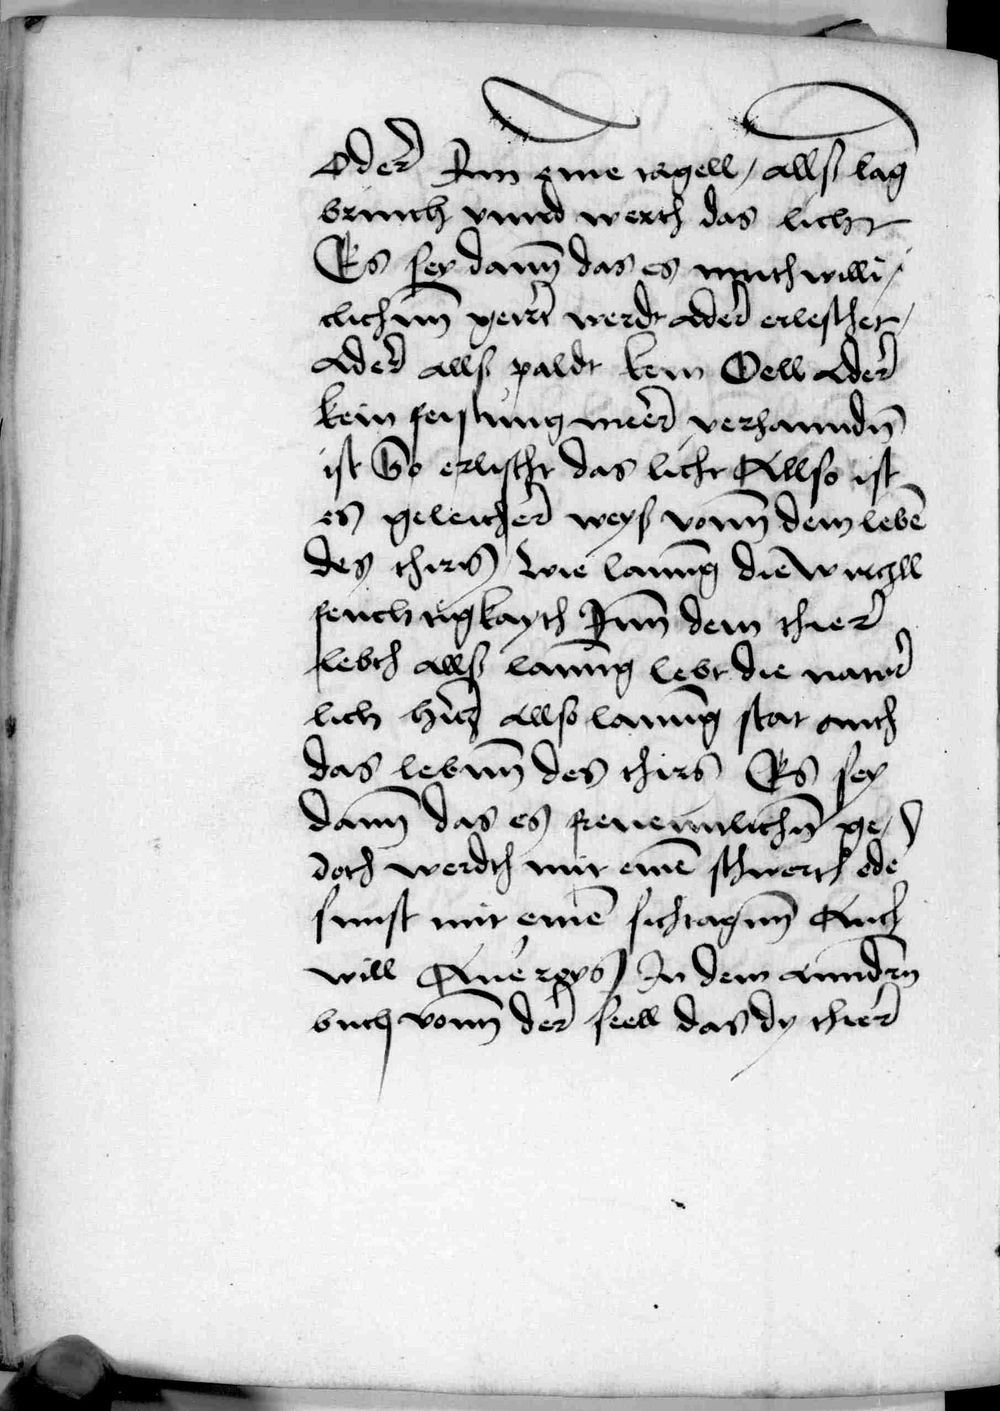 Oder Inn eine tygell / alls lag
brinth vnnd werth das licht
Es sey dann das es muthwilli/
clichnn geirrt werdt oder erleschet /
Oder alls paldt kein Oell oder
kein feistung meer verhanndn
ist So erlischt das licht Allso ist
es geleicher weys vonn dem lebe
des thirs / Wie lanng die Wurczll
feuchtigkayth Inn dem thier
lebth alls lanng lebt die natur
lich hicz allso lanng stat auch
das lebnn des thirs Es sey
dann das es freuenntlichn ge/
doth werdth mit eine schwerth ode
sunst mit eine sichtagnn Auch
will Aueroys In dem anndrn
buch vonn der seell das dy thier